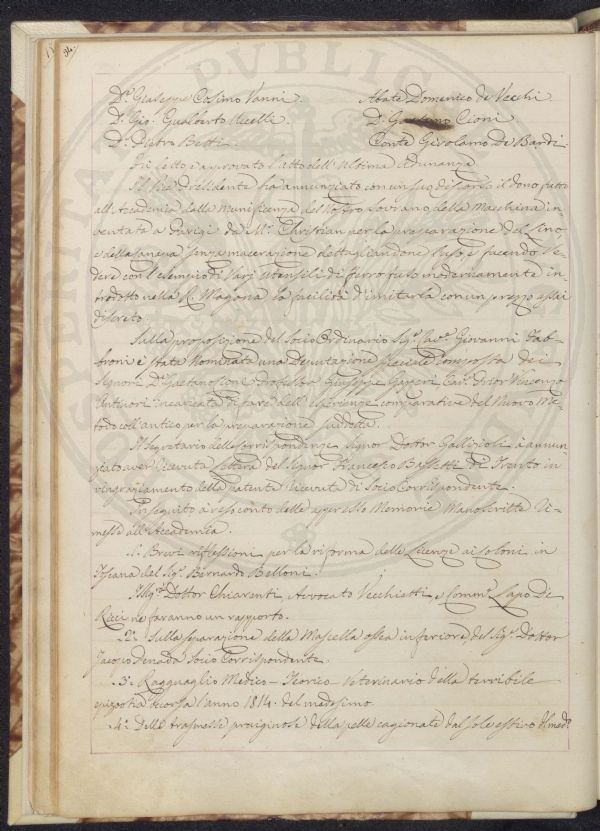 94.
D.r Giuseppe Cosimo Vanni. Abate Domenico de Vecchi
D. Gio. Gualberto Uccelli. D. Gaetano Cioni
D. Pietro Betti. Conte Girolamo De Bardi.
Fù letto e approvato l'atto dell'ultima Adunanza
Il Vice Presidente ha annunziato con un suo discorso il dono fatto
all'Accademia dalla Munificenza del Nostro Sovrano della Macchina in-
ventata a Parigi da Mr. Christian per la preparazione del Lino
e della canapa senza macerazione dettagliandone l'uso, e facendo ve-
dere con l'esempio di varj utensili di ferro fuso modernamente in-
trodotto nella R. Magona la facilità d'imitarla con un prezzo assai
discreto.
Sulla proposizione del Socio Ordinario Sig.r Cav.e Giovanni Fab-
broni è stata nominata una Deputazione speciale composta dei
Signori D. Gaetano Cioni Professor Giuseppe Gazzeri Cav. Prior Vincenzo
Antinori incaricata di fare dell'esperienze comparative del Nuovo Me-
todo coll'antico per la preparazione suddetta.
Il Segretario delle Corrispondenze Signor Dottor Gallizioli à annun-
ziato aver ricevuta lettera del Signor Francesco Bassetti di Trento in
ringraziamento della patente ricevuta di Socio Corrispondente.
In seguito à reso conto delle appresso Memorie Manoscritte Ri-
messe all'Accademia.
1.a Brevi riflessioni per la riforma delle Licenze ai Coloni in
Toscana del Sig.r Bernardo Belloni.
I Sigg.ri Dottor Chiarenti Avvocato Vecchietti e Comm.r Lapo De
Ricci ne faranno un rapporto.
2.a Sulla separazione della Mascella ossea inferiore, del Sig.r Dottor
Jacopo Penada Socio Corrispondente.
3.a Ragguaglio Medico-Storico-Veterinario della terribile
epizootia occorsa l'anno 1814. del medesimo
4.a Delle pruriginose della pelle cagionate dal sole estivo del med.o